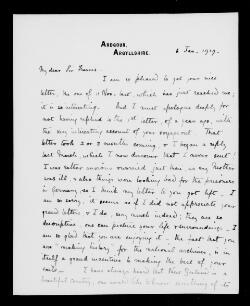 ARDGOUR,
ARGYLLSHIRE.
6 Jan. 1919.
My dear Sir Francis
I am so pleased to get your nice
letter, the one of 11 Nov. last, which has just reached me;
it is so interesting. And I must apologise deeply for
not having replied to the 1st letter, of a year ago, with
the very interesting account of your voyage out. That
letter took 2 or 3 months coming, or I began a reply
last March which I now discover that I never sent!
I was rather anxious & worried just then as my Mother
was ill, & also things were looking bad for the prisoners
in Germany, so I think my letter to you got left. I
am so sorry, it seems as if I did not appreciate your
good letters & I do, very much indeed; they are so
descriptive, one can picture your life & surroundings. I
am so glad that you are enjoying it. The fact that you
are "making history", for the national archives, is in
itself a grand incentive to making the best of your
I have always heard that New Zealand is a
beautiful country, one would like to know something of to